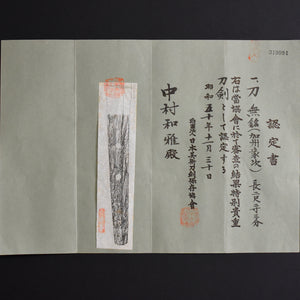 319091
認定書
一、刀 無銘(加州家次) 長二尺
右は當協會に於て審査の結果特別貴重
刀剣として認定する
昭和五十年十一月三十日
財團法人日本美術刀剣保存協會
中村和雅殿